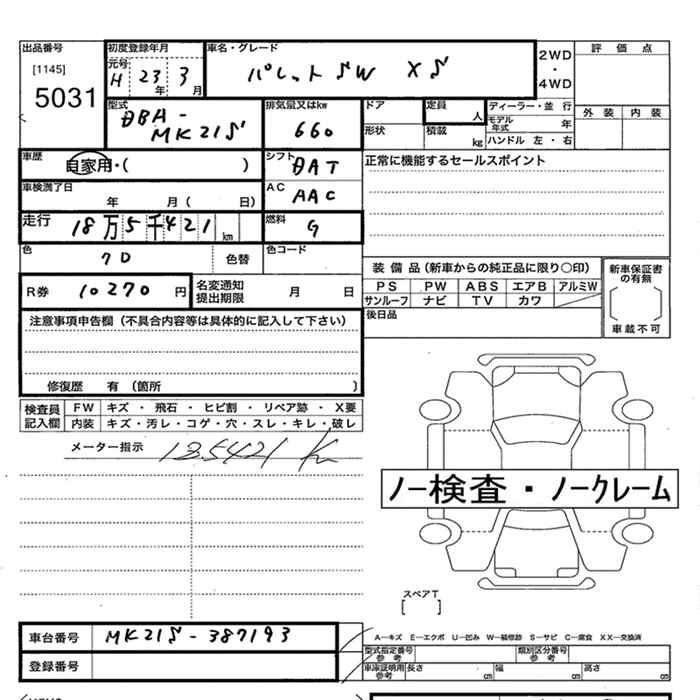 出品番号
[1145]
5031
初度登録年月
元号
H 23 年 3 月
車名・グレード
パレットSW XS
2WD
・
4WD
評価点
外装 内装
型式
DBA-
MK21S
排気量又はkw
660
ドア
形状
定員 人
積載 kg
ディーラー・並 行
モデル年式 年
ハンドル 左・右
車歴
自家用・( )
シフト
DAT
正常に機能するセールスポイント
車検満了日
年 月( 日)
AC
AAC
走行
18万5千421km
燃料
G
色
7D
色替
色コード
R券 10270 円
名変通知
提出期限
月 日
装備品(新車からの純正品に限り〇印)
PS PW ABS エアB アルミW
サンルーフ ナビ TV カワ
新車保証書
の有無
車載不可
後日品
注意事項申告欄(不具合内容等は具体的に記入して下さい)
修復歴 有(箇所 )
検査員
記入欄
FW キズ・飛石・ヒビ割・リペア跡・X要
内装 キズ・汚レ・コゲ・穴・スレ・キレ・破レ
メーター指示 185421 Km
ノー検査・ノークレーム
スペアT
[ ]
車台番号 MK21S-387193
登録番号
A―キズ E―エクボ U―凹み W―補修跡 S―サビ C―腐食 XX―交換済
型式指定番号
参考
類別区分番号
参考
車庫証明用
参考
長さ cm 幅 cm 高さ cm